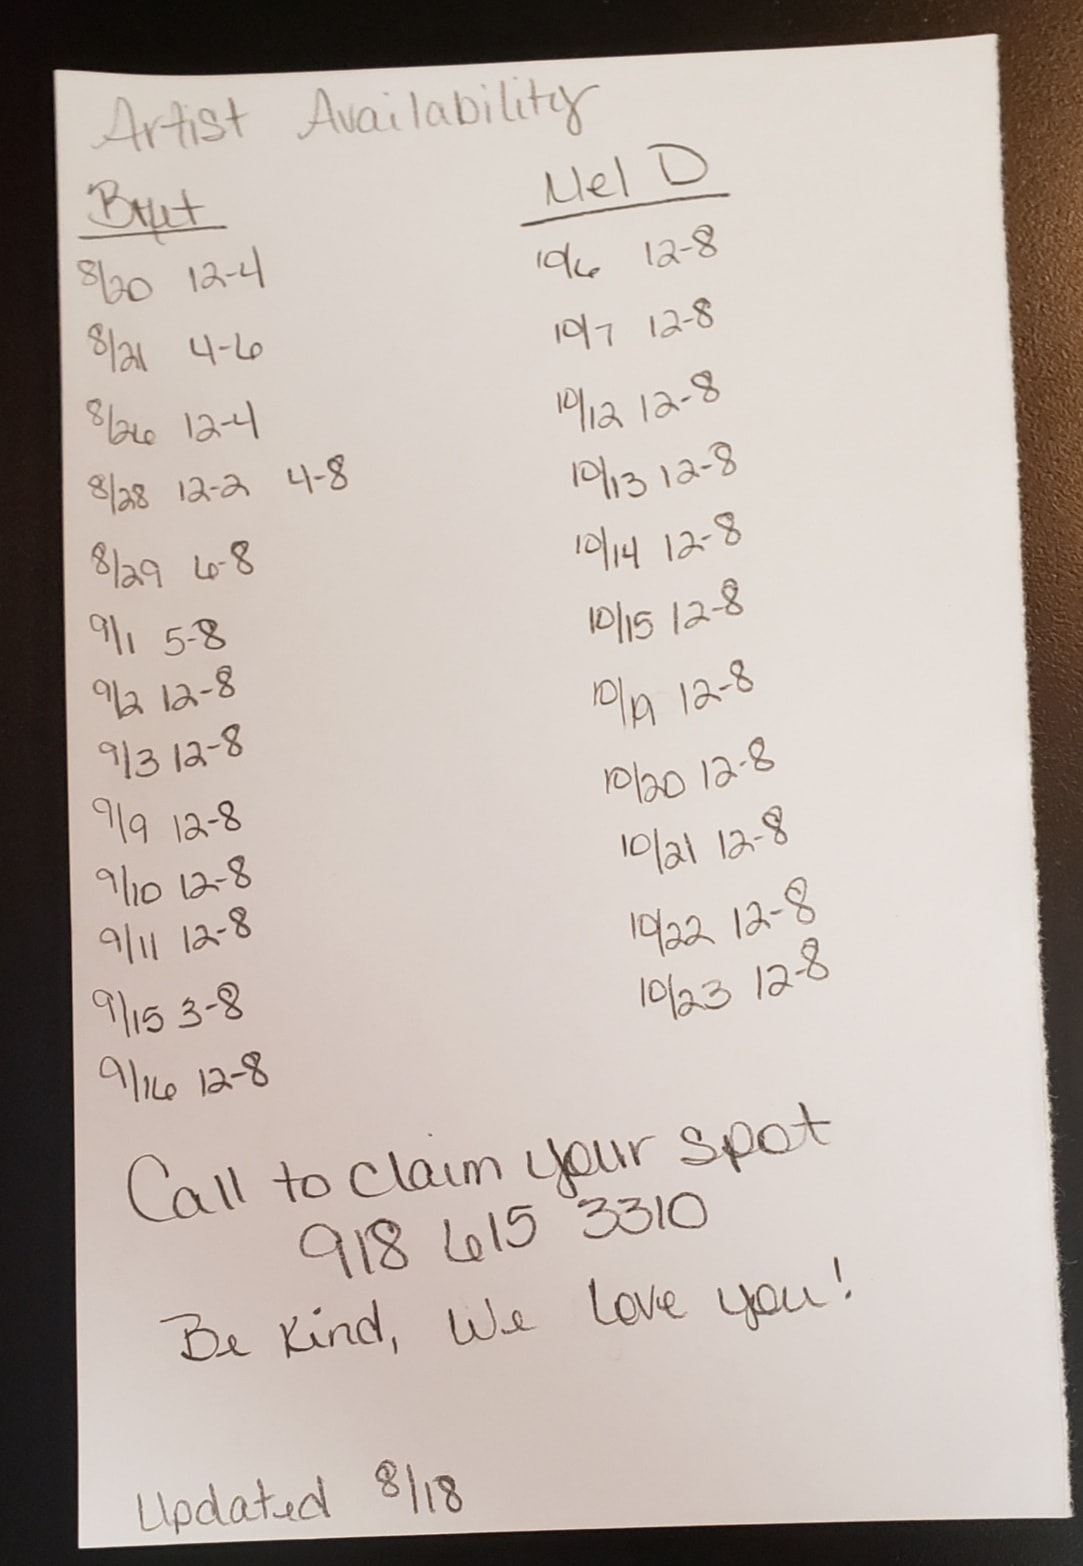 Artist Availability
8/20 12-4
8/21 4-6
8/26 12-4
8/28 12-2 4-8
8/29 6-8
9/1 5-8
9/2 12-8
9/3 12-8
9/9 12-8
9/10 12-8
9/11 12-8
9/15 3-8
9/16 12-8
Mel D
10/6 12-8
10/7 12-8
10/12 12-8
10/13 12-8
10/14 12-8
10/15 12-8
10/19 12-8
10/20 12-8
10/21 12-8
10/22 12-8
10/23 12-8
Call to claim your spot
918 615 3310
Be Kind, We Love you!
Updated 8/18